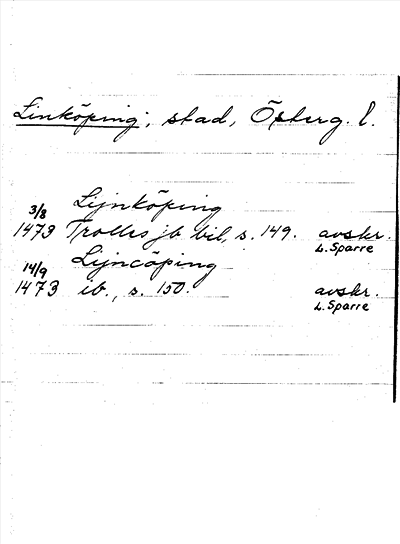 Linköping; stad, Österg. l.
Lijnköping
3/8
1473 Trolles jb bil, s. 149. avskr.
L. Sparre
Lijncöping
14/9
1473 ib., s. 150. avskr.
L. Sparre